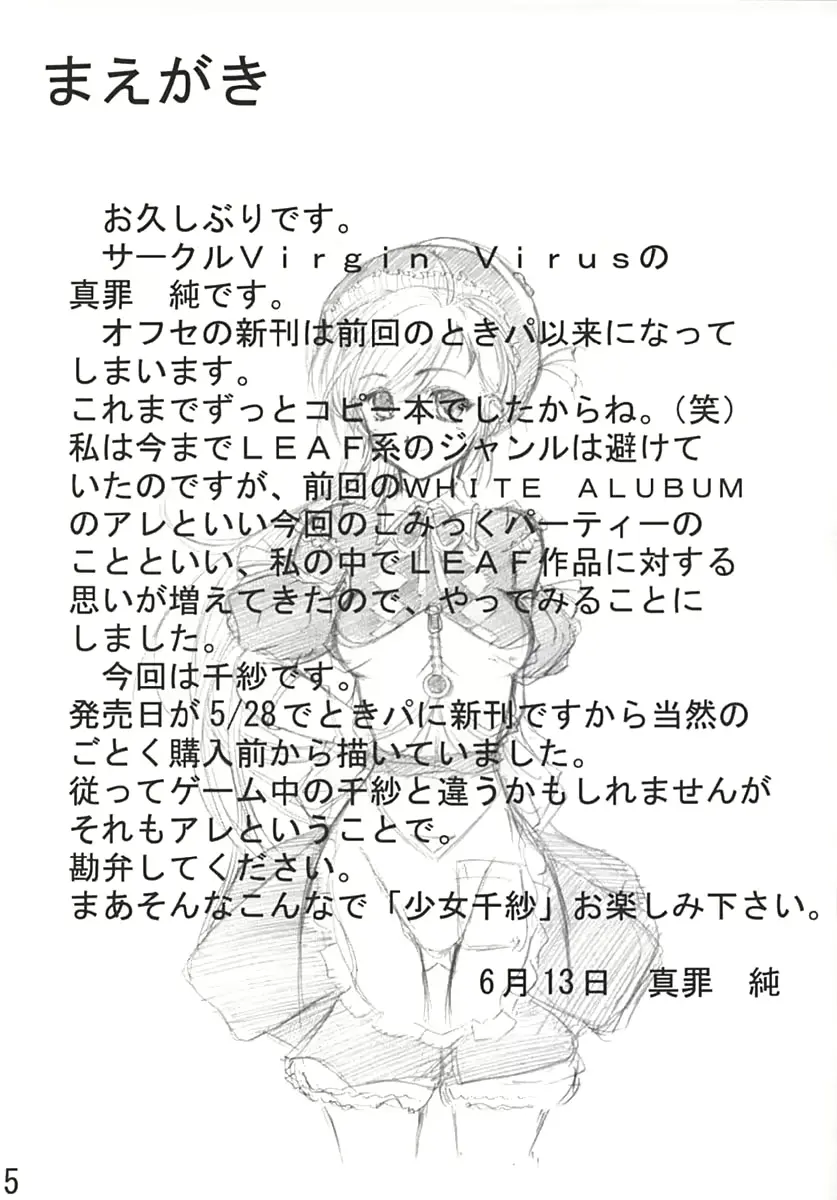 まえがき
お久しぶりです。
サークルＶｉｒｇｉｎ　Ｖｉｒｕｓの
真罪　純です。
オフセの新刊は前回のときパ以来になって
しまいます。
これまでずっとコピー本でしたからね。（笑）
私は今までＬＥＡＦ系のジャンルは避けて
いたのですが、前回のＷＨＩＴＥ　ＡＬＵＢＵＭ
のアレといい今回のこみっくパーティーの
ことといい、私の中でＬＥＡＦ作品に対する
思いが増えてきたので、やってみることに
しました。
今回は千紗です。
発売日が5/28でときパに新刊ですから当然の
ごとく購入前から描いていました。
従ってゲーム中の千紗と違うかもしれませんが
それもアレということで。
勘弁してください。
まあそんなこんなで「少女千紗」お楽しみ下さい。
6月13日　真罪　純
5